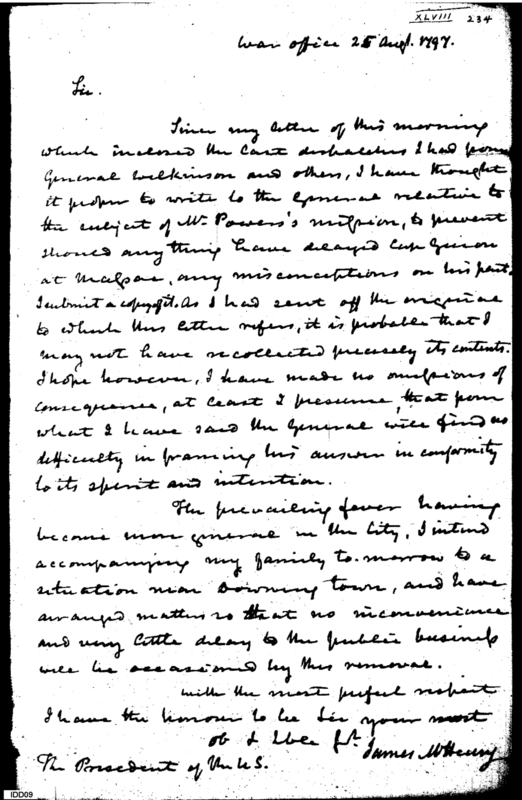 XLVIII 234
War office 25 Augt. 1797.
Sir.
Since my letter of this morning
which inclosed the last dispatches I had from
General Wilkinson and others, I have thought
it proper to write to the General relative to
the subject of Mr Powers's mission, to prevent
should any thing have delayed Cap Guion
at , any misconceptions on his part.
I submit a copy of it. As I had sent off the original
to which this letter refers, it is probable that I
may not have recollected precisely its contents.
I hope however, I have made no omissions of
consequence, at least I presume, that from
what I have said the General will find no
difficulty in framing his answer in conformity
to its spirit and intention.
The prevailing fever having
become more general in the City, I intend
accompanying my family to-morrow to a
situation near Downing town, and have
arranged matters so that no inconvenience
and very little delay to the public business
will be occasioned by this removal.
with the most perfect respect
I have the honour to be Sir your most
ob & hble St.
James McHenry
The President of the U.S.
IDD09